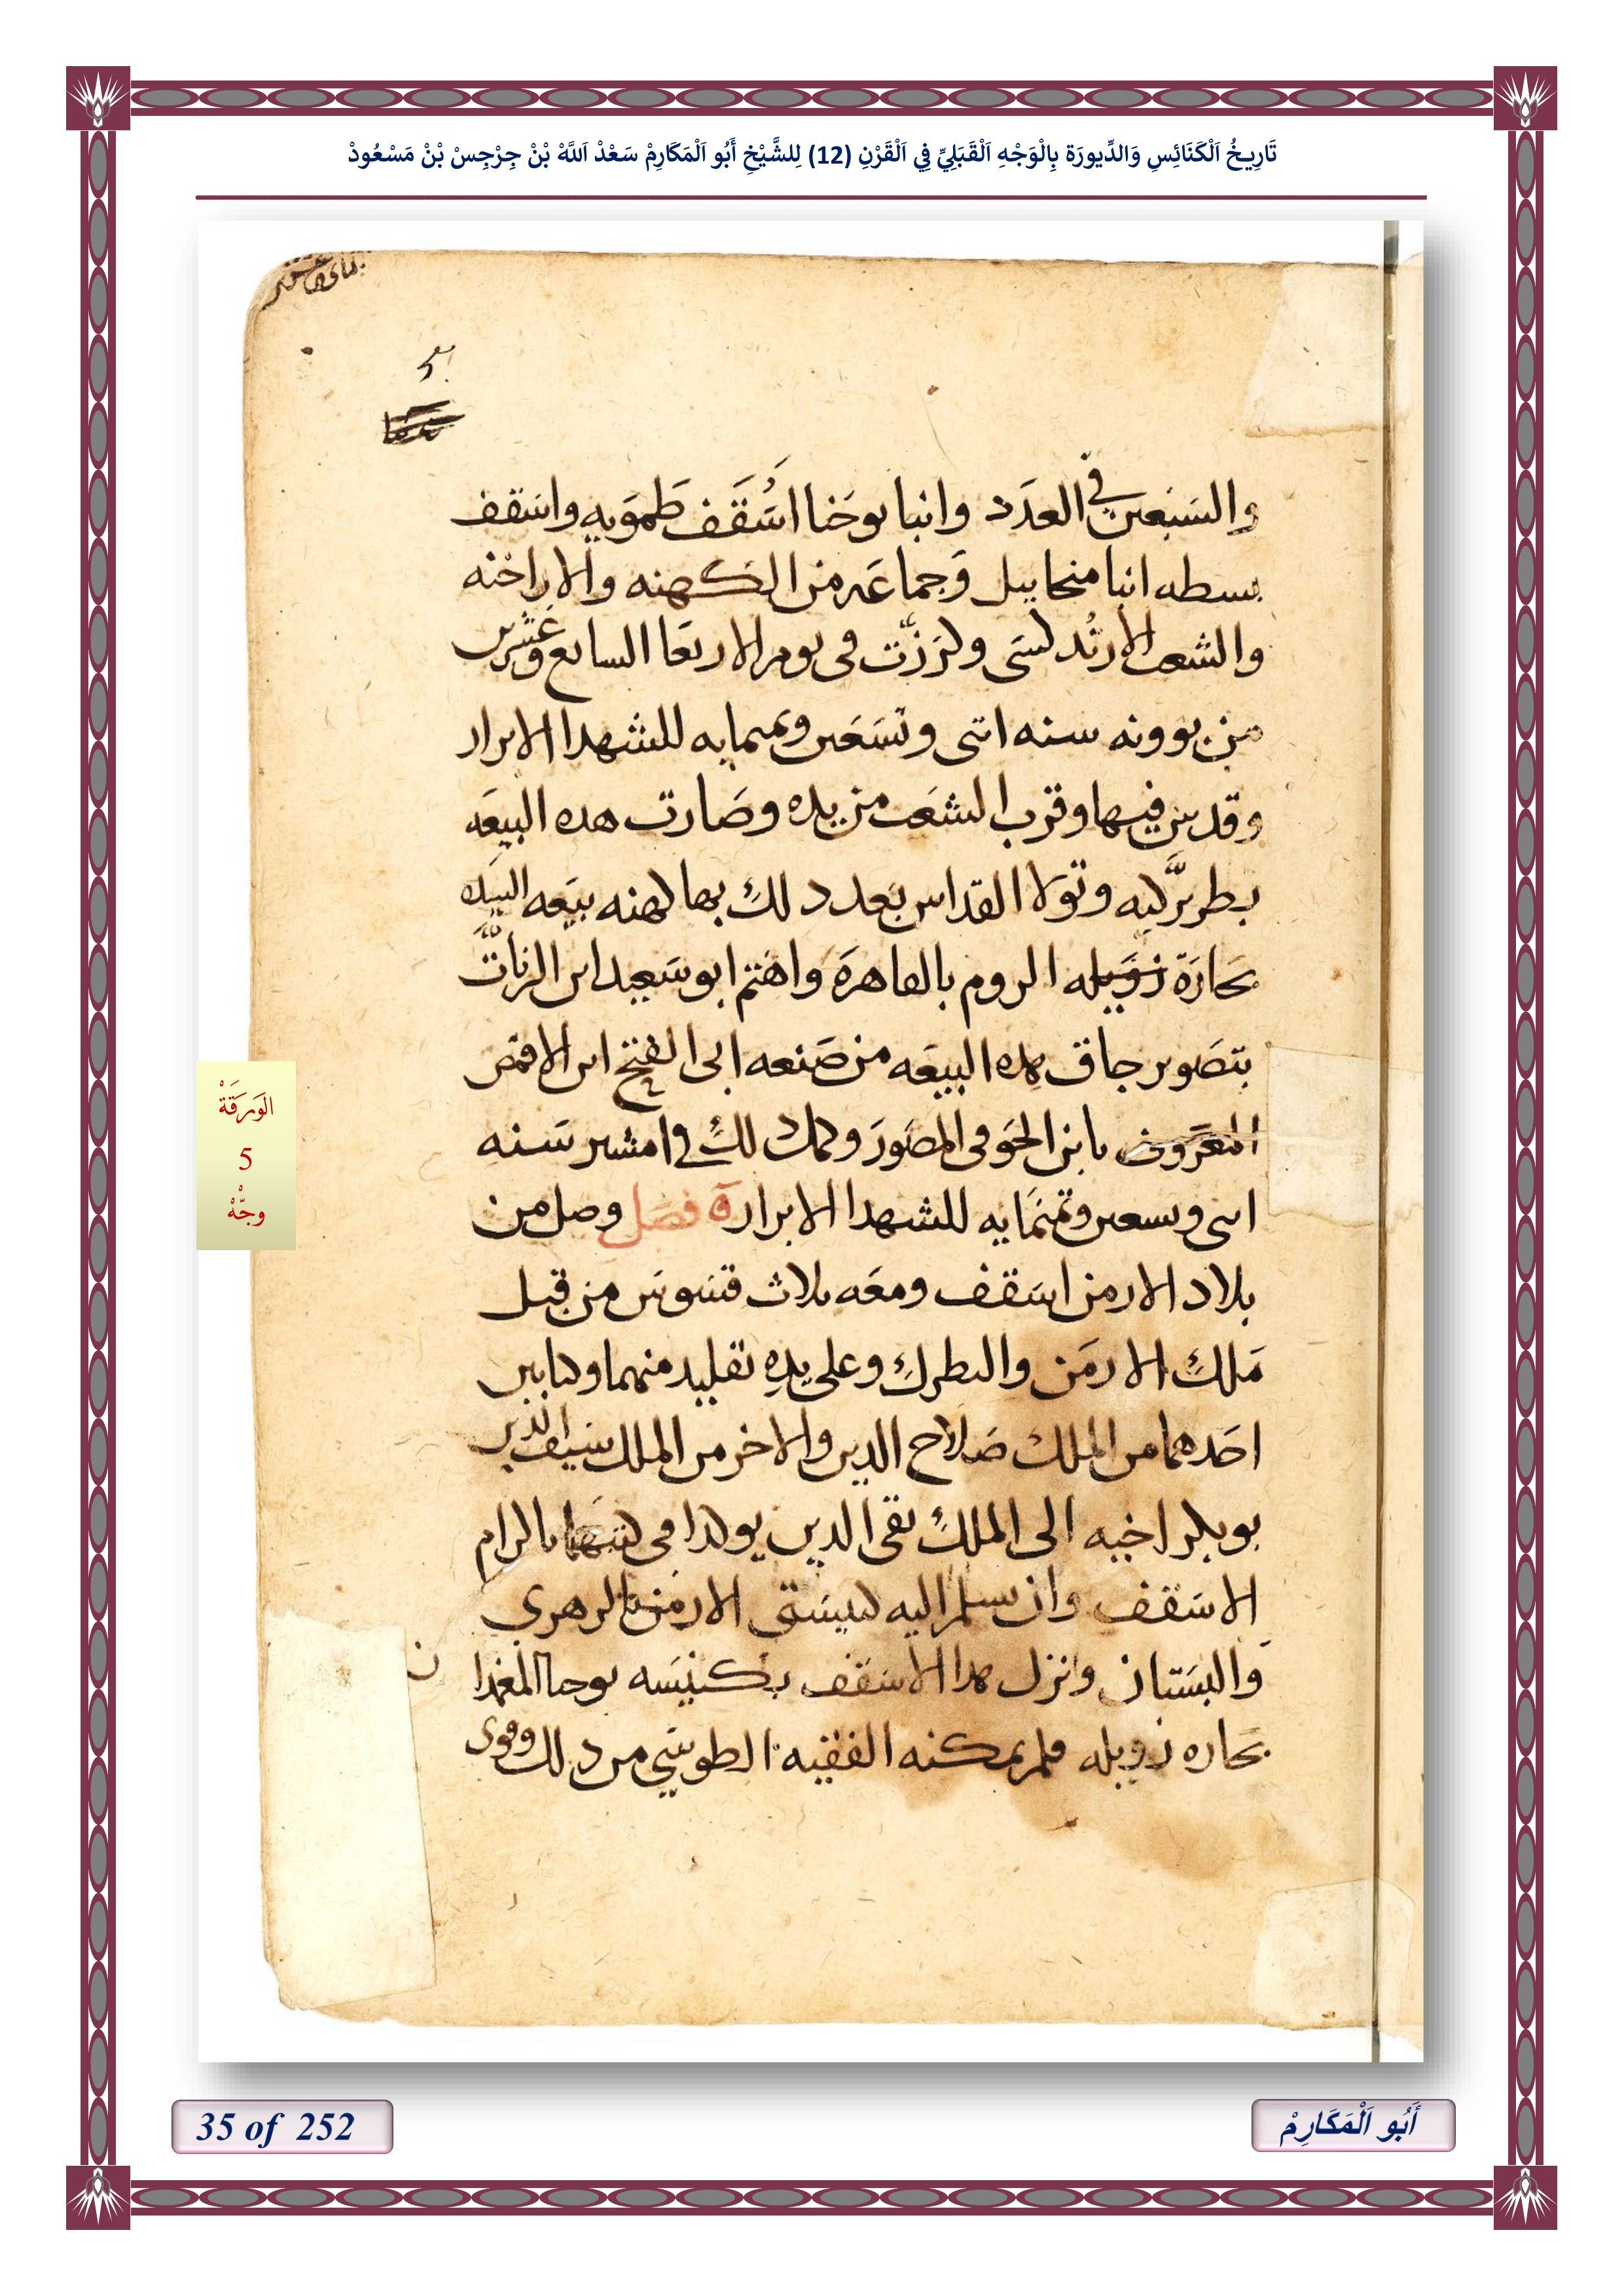 تَارِيخُ اَلْكَنَائِسِ وَالدِّيورَة بِالْوَجْهِ اَلْقَبَلِيِّ فِي اَلْقَرْنِ (12) لِلشَّيْخِ أَبُو اَلْمَكَارِمْ سَعْدْ اَللَّهْ بْنْ جِرْجِسْ بْنْ مَسْعُودْ
والسَبعين في العدَد وانبا يوحَنا اسُقَف طَمَويه واسَقف
بسطه انبا منحاييل وَجماعَه من الكهنه والاراخنه
والشعب الارثدلسَى وكرزَّت فى يوم الاربَعا السابع وعشرين
من بوونه سنه اثنى وتسَعَين وثمنمايه للشهدا الابرار
وقدس فيها وقرب الشعَب من يده وصَارت هده البيعَه
بطريرَّكيه وتولا القداس بَعد دلكَ بها كهنه بيَعه السيده
بحَارَة زوَيله الروم بالقاهرَة واهَتم ابو سَعيد ابن الزياتَّ
بتصَوير جاق هده البيعَه من صَنعه ابى الفتح ابن الاقمص
المَعرَوف بابن الحَوفى المصَورَ وكملت دلكَ فى امشير سَنه
اثنى وتسعين وثمنمَايه للشهدا الابرار ة فصَل وصل من
بلاد الارمن اسَقف ومعَه ثلاث قسَوس من قبل
مَلكَ الارمَن والبطركَ وعلى يدهِ تقليد منهما وكتابين
احَدهما من الملك صَلاح الدين والاخر من الملك سَيف الدين
بوبكر اخيه الى الملكَ تقى الدين يوكدا فى كتبهَما باكرام
الاسَقف وان يسلم اليه كنيسَتى الارمن بالزهرى
والبسَتان وانزل هدا الاسَقف بكنيسَه يوحنا المغمدا
بحَاره زويله فلم يمكنه الفقيه الطوسَى من دلك وقوى
الوَرَقَةْ
5
وجّْهْ
35 of 252
أَبُو اَلْمَكَارِمْ